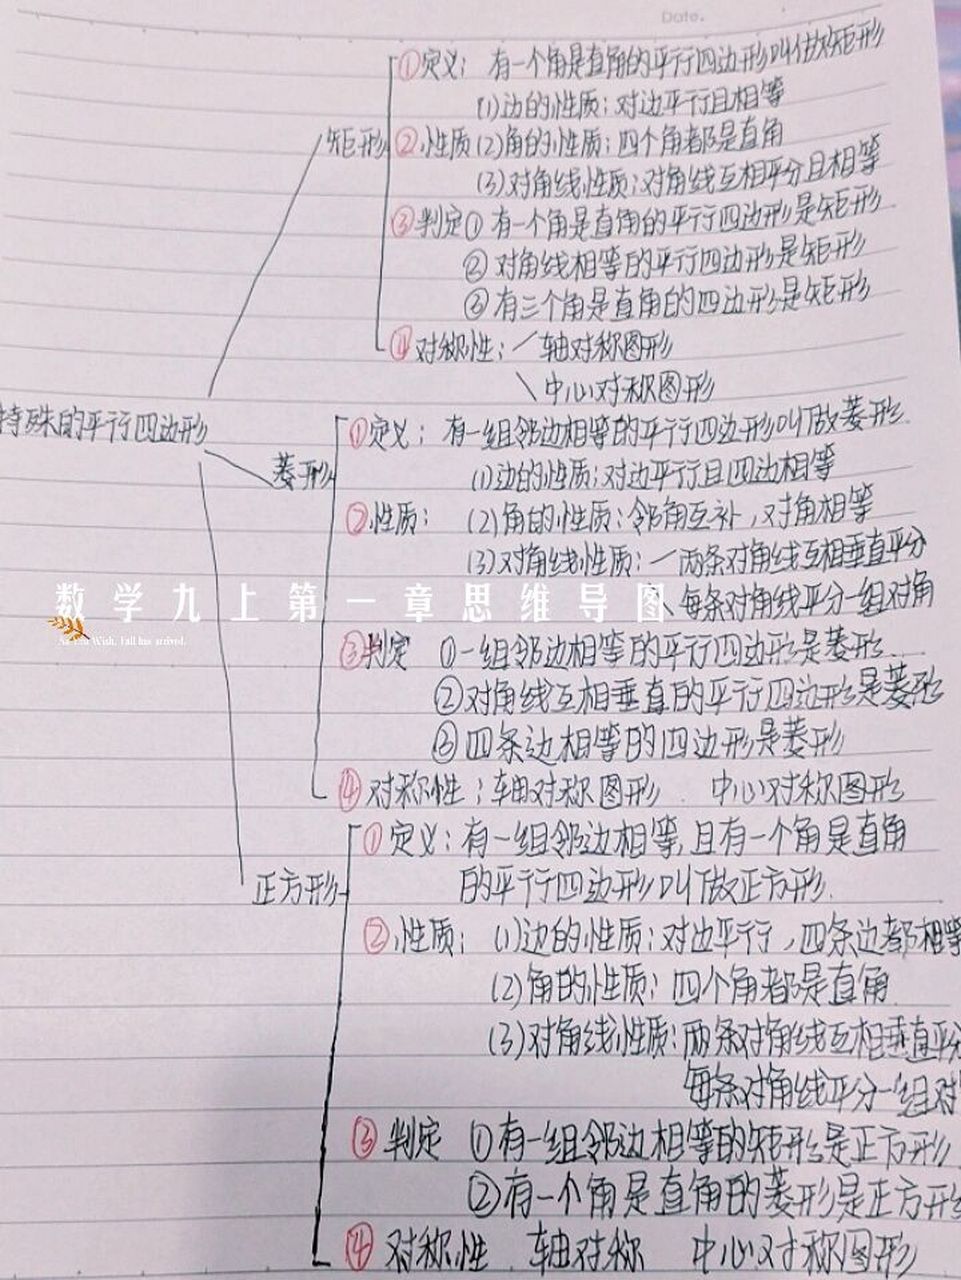 Date.
①定义：有一个角是直角的平行四边形叫做矩形
(1)边的性质：对边平行且相等
矩形 ②性质(2)角的性质：四个角都是直角
(3)对角线性质：对角线互相平分且相等
③判定①有一个角是直角的平行四边形是矩形
②对角线相等的平行四边形是矩形
③有三个角是直角的四边形是矩形
④对称性：轴对称图形
中心对称图形
特殊的平行四边形
①定义：有一组邻边相等的平行四边形叫做菱形.
菱形 (1)边的性质：对边平行且四边相等
②性质：(2)角的性质：邻角互补，对角相等
(3)对角线性质：两条对角线互相垂直平分
数学九上第一章思维导图
每条对角线平分一组对角
Wish, Fall has arrived.
③判定 ①一组邻边相等的平行四边形是菱形.
②对角线互相垂直的平行四边形是菱形
③四条边相等的四边形是菱形
④对称性：轴对称图形. 中心对称图形
①定义：有一组邻边相等,且有一个角是直角
正方形 的平行四边形叫做正方形.
②性质：(1)边的性质：对边平行，四条边都相等
(2)角的性质：四个角都是直角
(3)对角线性质：两条对角线互相垂直平分
每条对角线平分一组对
③判定 ①有一组邻边相等的矩形是正方形
②有一个角是直角的菱形是正方形
④对称性 轴对称 中心对称图形